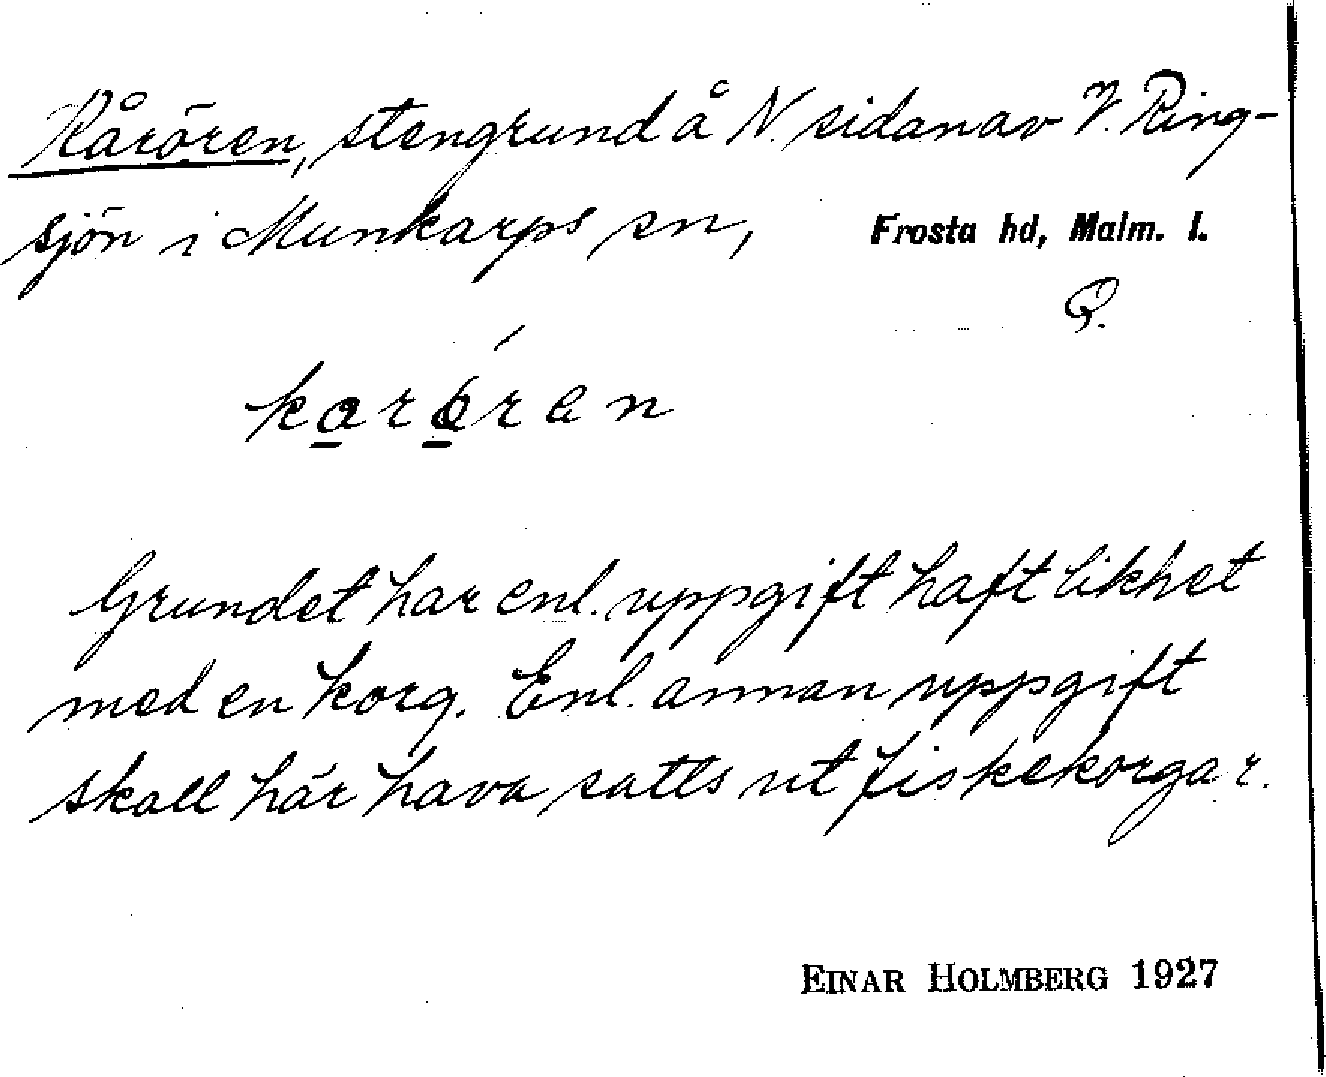 Kårören, stengrund å N. sidan av V. Ring-
sjön i Munkarps sn, Frosta hd, Malm. l.
Grundet har enl. uppgift haft likhet
med en korg. Enl. annan uppgift
skall här hava satts ut fiskekorgar.
EINAR HOLMBERG 1927